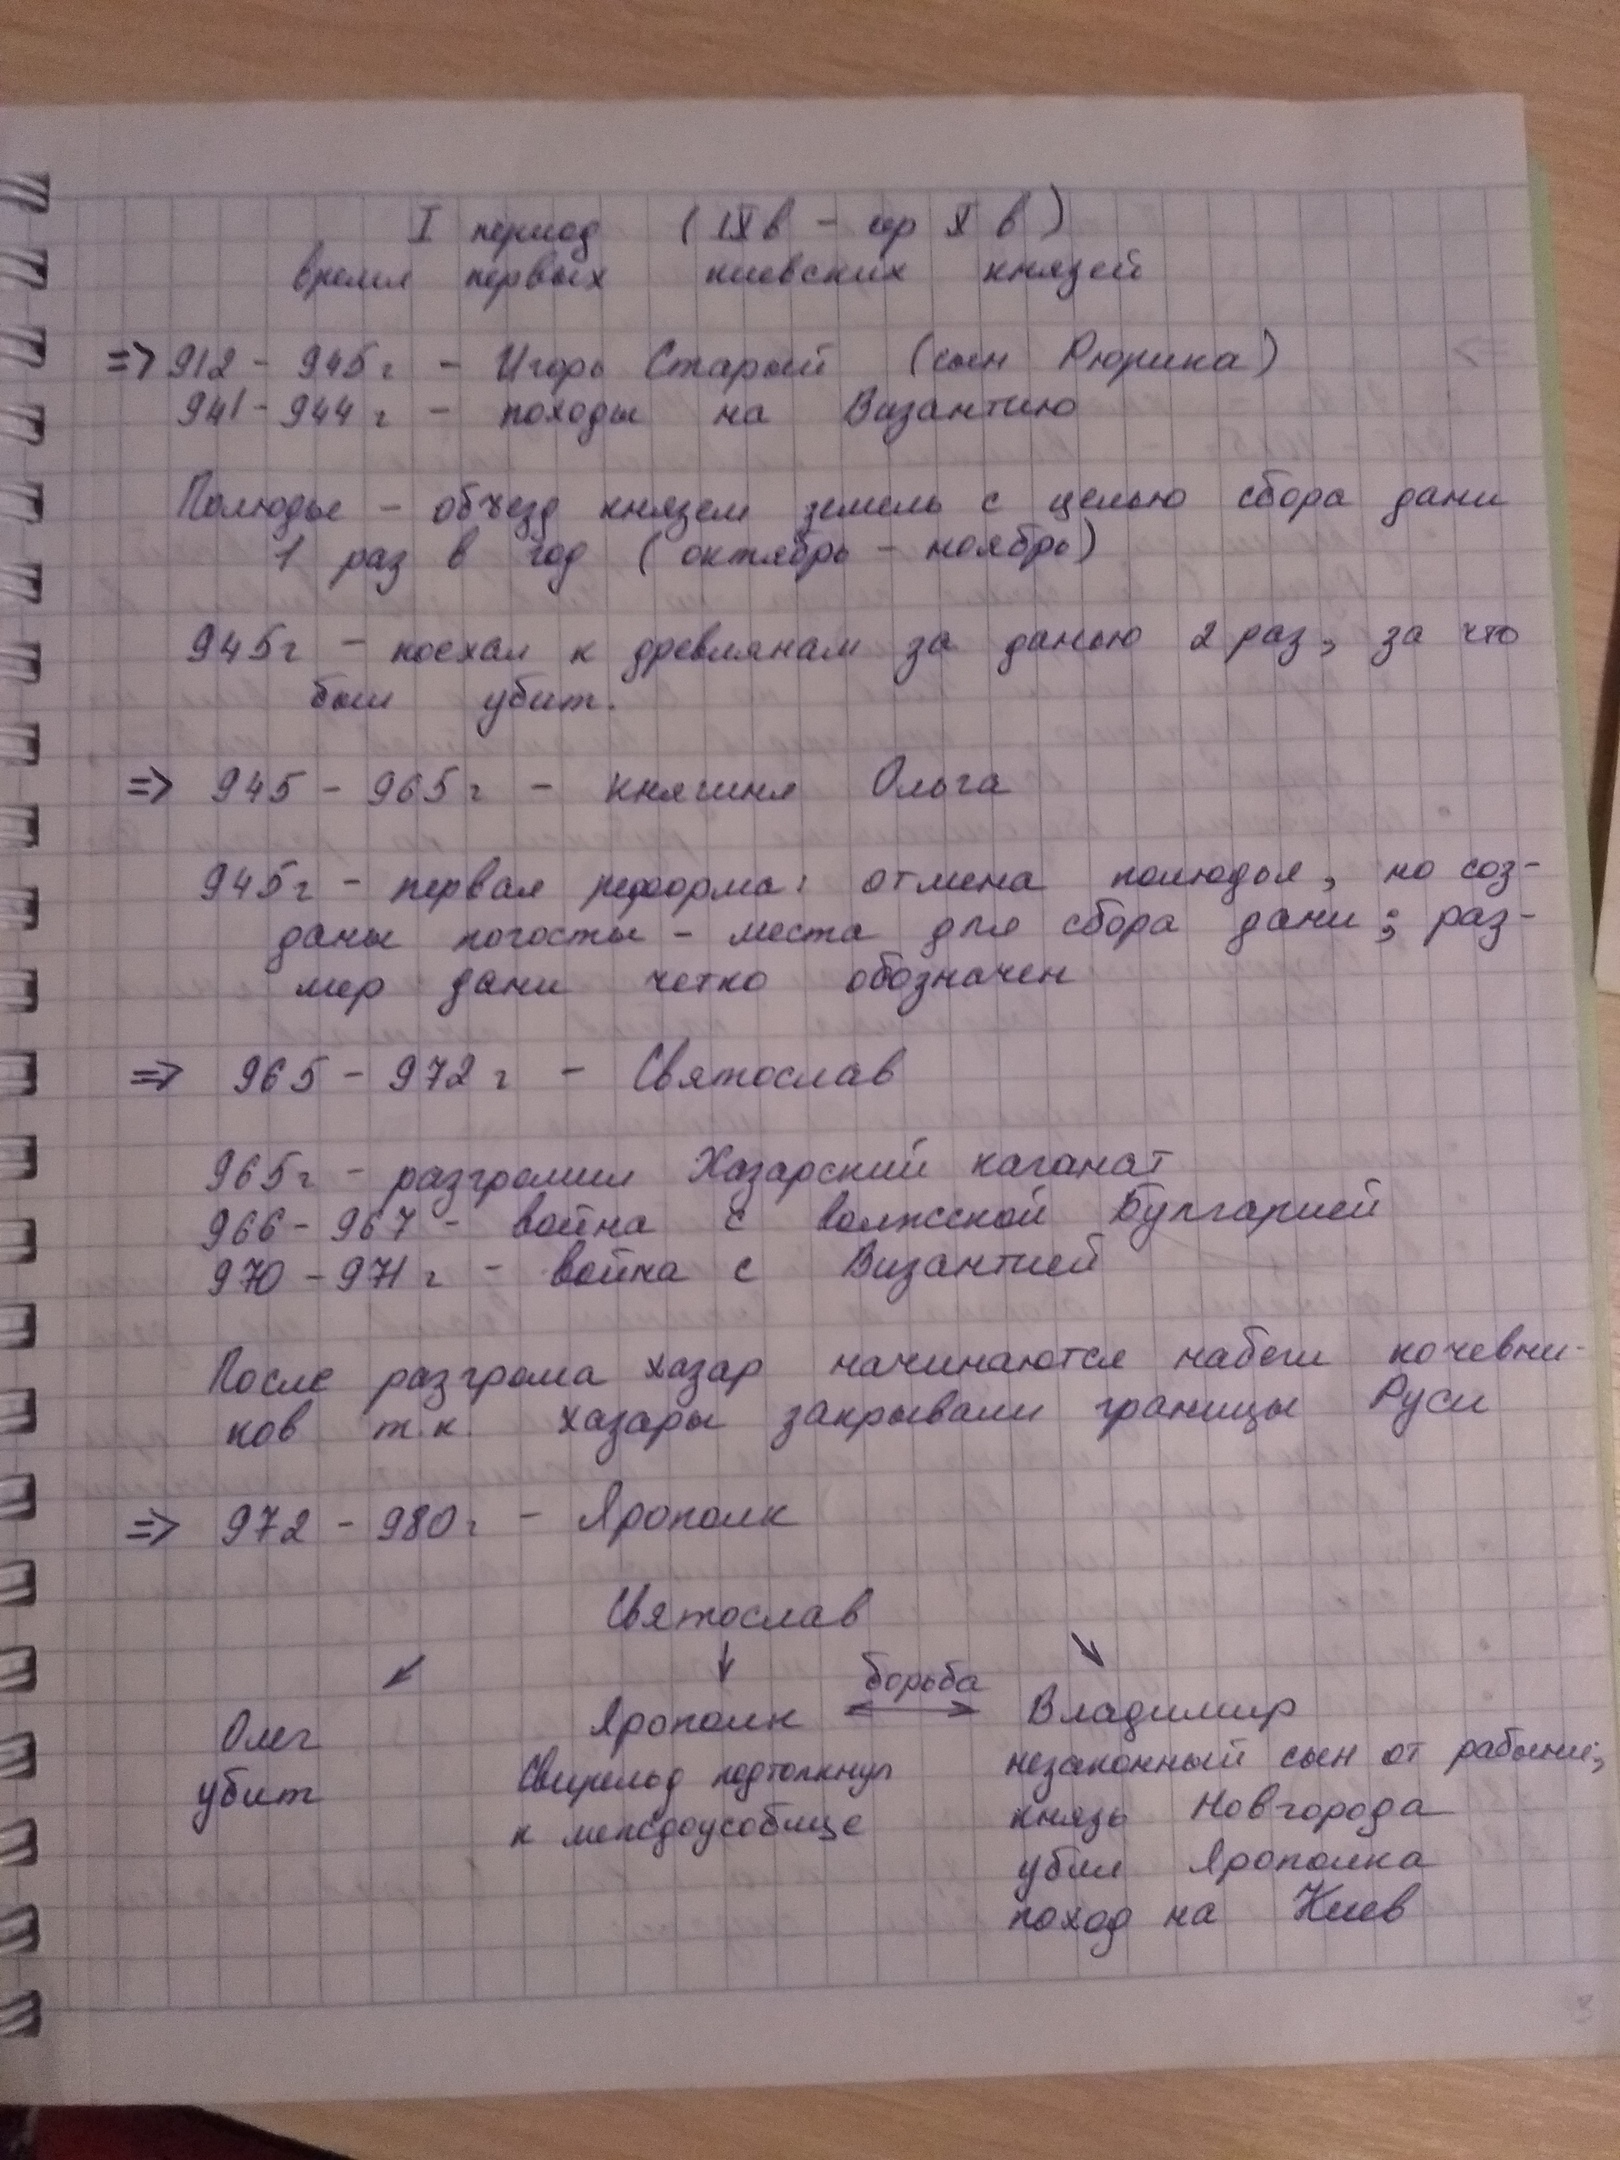 I период (IX в - ср X в)
время первых киевских князей
=> 912 - 945 г - Игорь Старый (сын Рюрика)
941 - 944 г - походы на Византию
Полюдье - объезд князем земель с целью сбора дани
1 раз в год (октябрь - ноябрь)
945 г - поехал к древлянам за данью 2 раз, за что
был убит.
=> 945 - 965 г - княгиня Ольга
945 г - первая реформа: отмена полюдья, но соз-
даны погосты - места для сбора дани; раз-
мер дани четко обозначен
=> 965 - 972 г - Святослав
965 г - разгромил Хазарский каганат
966 - 967 - война с волжской Булгарией
970 - 971 г - война с Византией
После разгрома хазар начинаются набеги кочевни-
ков т.к. хазары закрывали границы Руси
=> 972 - 980 г - Ярополк
Святослав
↙ ↓ ↘
борьба
Олег Ярополк ↔ Владимир
убит
Свинельд подтолкнул
к междоусобице
незаконный сын от рабыни;
князь Новгорода
убил Ярополка
поход на Киев